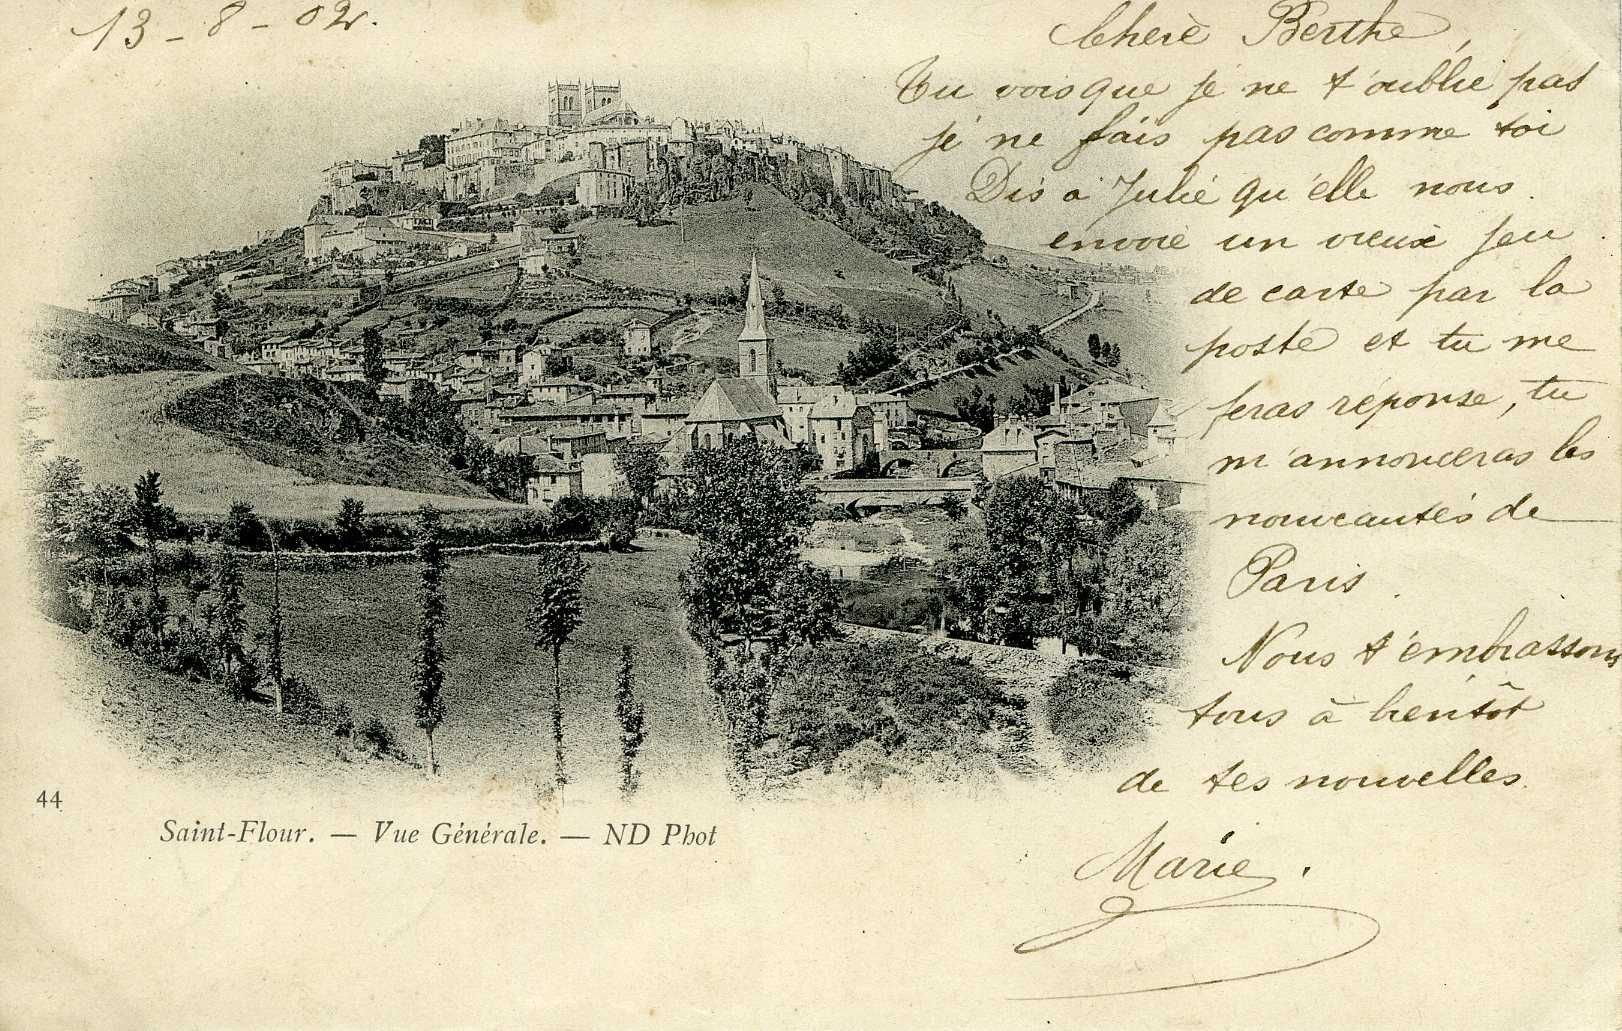 13 - 8 - 02.
Chère Berthe,
Tu vois que je ne t'oublie pas
je ne fais pas comme toi
Dis a Julie qu'elle nous
envoie un vieux jeu
de carte par la
poste et tu me
feras réponse, tu
m'annonceras les
nouveautés de
Paris.
Nous t'embrassons
tous à bientôt
de tes nouvelles.
Marie.
44
Saint-Flour. — Vue Générale. — ND Phot